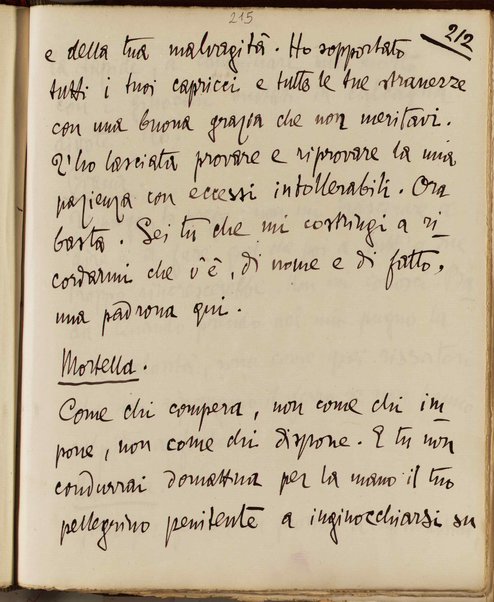 215
212
e della tua malvagità. Ho sopportato
tutti i tuoi capricci e tutte le tue stranezze
con una buona grazia che non meritavi.
T'ho lasciata provare e riprovare la mia
pazienza con eccessi intollerabili. Ora
basta. Sei tu che mi costringi a ri-
cordarmi che v'è, di nome e di fatto,
una padrona qui.
Mortella.
Come chi compera, non come chi im
pone, non come chi dispone. E tu non
condurrai domattina per la mano il tuo
pellegrino penitente a inginocchiarsi su